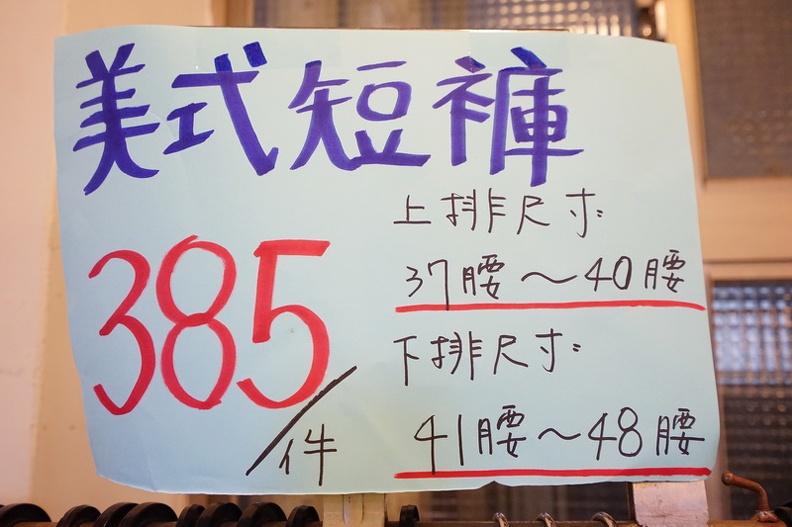 美式短褲
385/件
上排尺寸:
37腰～40腰
下排尺寸:
41腰～48腰